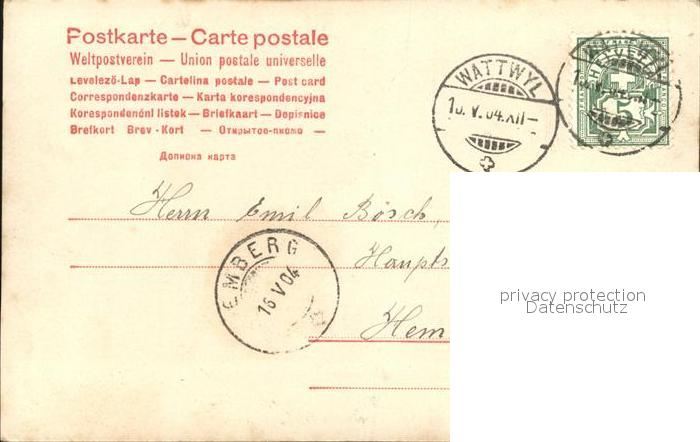 Postkarte — Carte postale
Weltpostverein — Union postale universelle
Levelező-Lap — Cartelina postale — Post card
Correspondenzkarte — Karta korespondencyjna
Korespondenční lístek — Briefkaart — Dopisnice
Brefkort Brev-Kort — Открытое-письмо —
Дописна карта
WATTWYL
10. V. 04. XII—
HELVETIA
5
Herrn Emil Bösch,
Haupts
Hem
EMBERG
16 V 04
privacy protection
Datenschutz